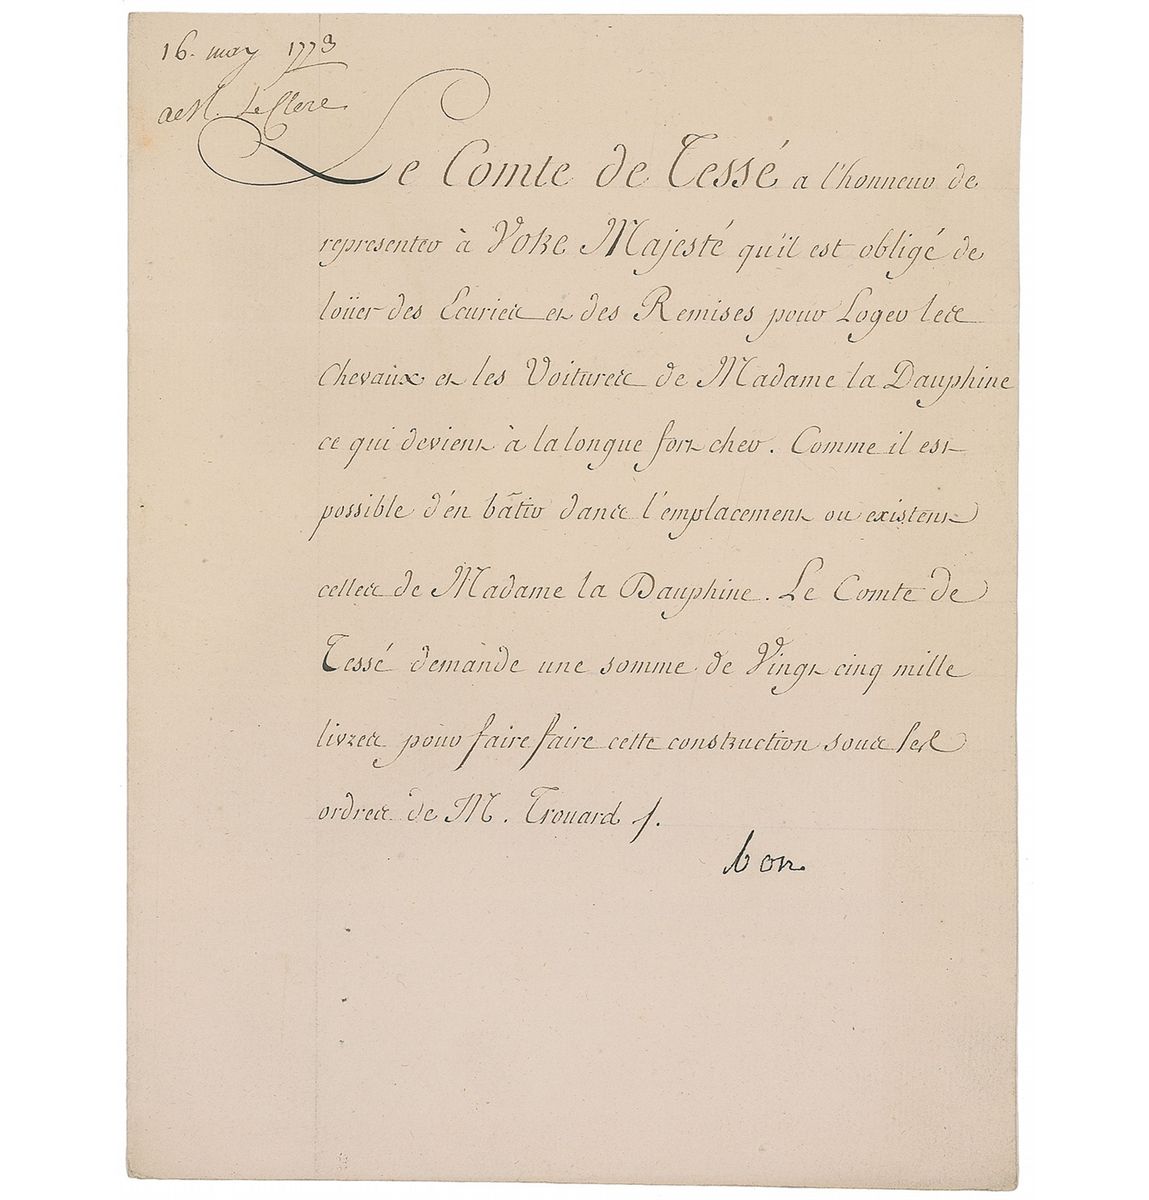 16. may 1773
a M. Le Clerc
Le Comte de Tessé a l'honneur de
representer à Votre Majesté qu'il est obligé de
loüer des Ecuries et des Remises pour Loger les
Chevaux et les Voitures de Madame la Dauphine
ce qui devient à la longue fort cher. Comme il est
possible d'en bâtir dans l'emplacement ou existent
celles de Madame la Dauphine. Le Comte de
Tessé demande une somme de Vingt cinq mille
livres pour faire faire cette construction sous les
ordres de M. Trouard /.
bon